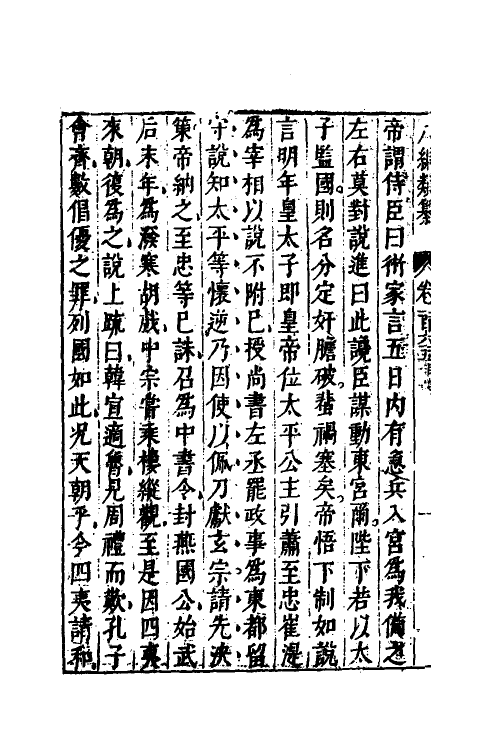 八編類纂 卷一百六五
帝謂侍臣曰術家言五日內有急兵入宮爲我備之
左右莫對說進曰此讒臣謀動東宮爾陛下若以太
子監國則名分定奸膽破蜚禍塞矣帝悟下制如說
言明年皇太子即皇帝位太平公主引蕭至忠崔湜
爲宰相以說不附巳授尚書左丞罷政事爲東都留
守說知太平等懷逆乃因使以佩刀獻玄宗請先決
策帝納之至忠等已誅召爲中書令封燕國公始武
后末年爲潑寒胡戲中宗嘗乘樓縱觀至是因四夷
來朝復爲之說上疏曰韓宣適魯見周禮而歎孔子
會齊數倡優之罪列國如此况天朝乎今四夷請和